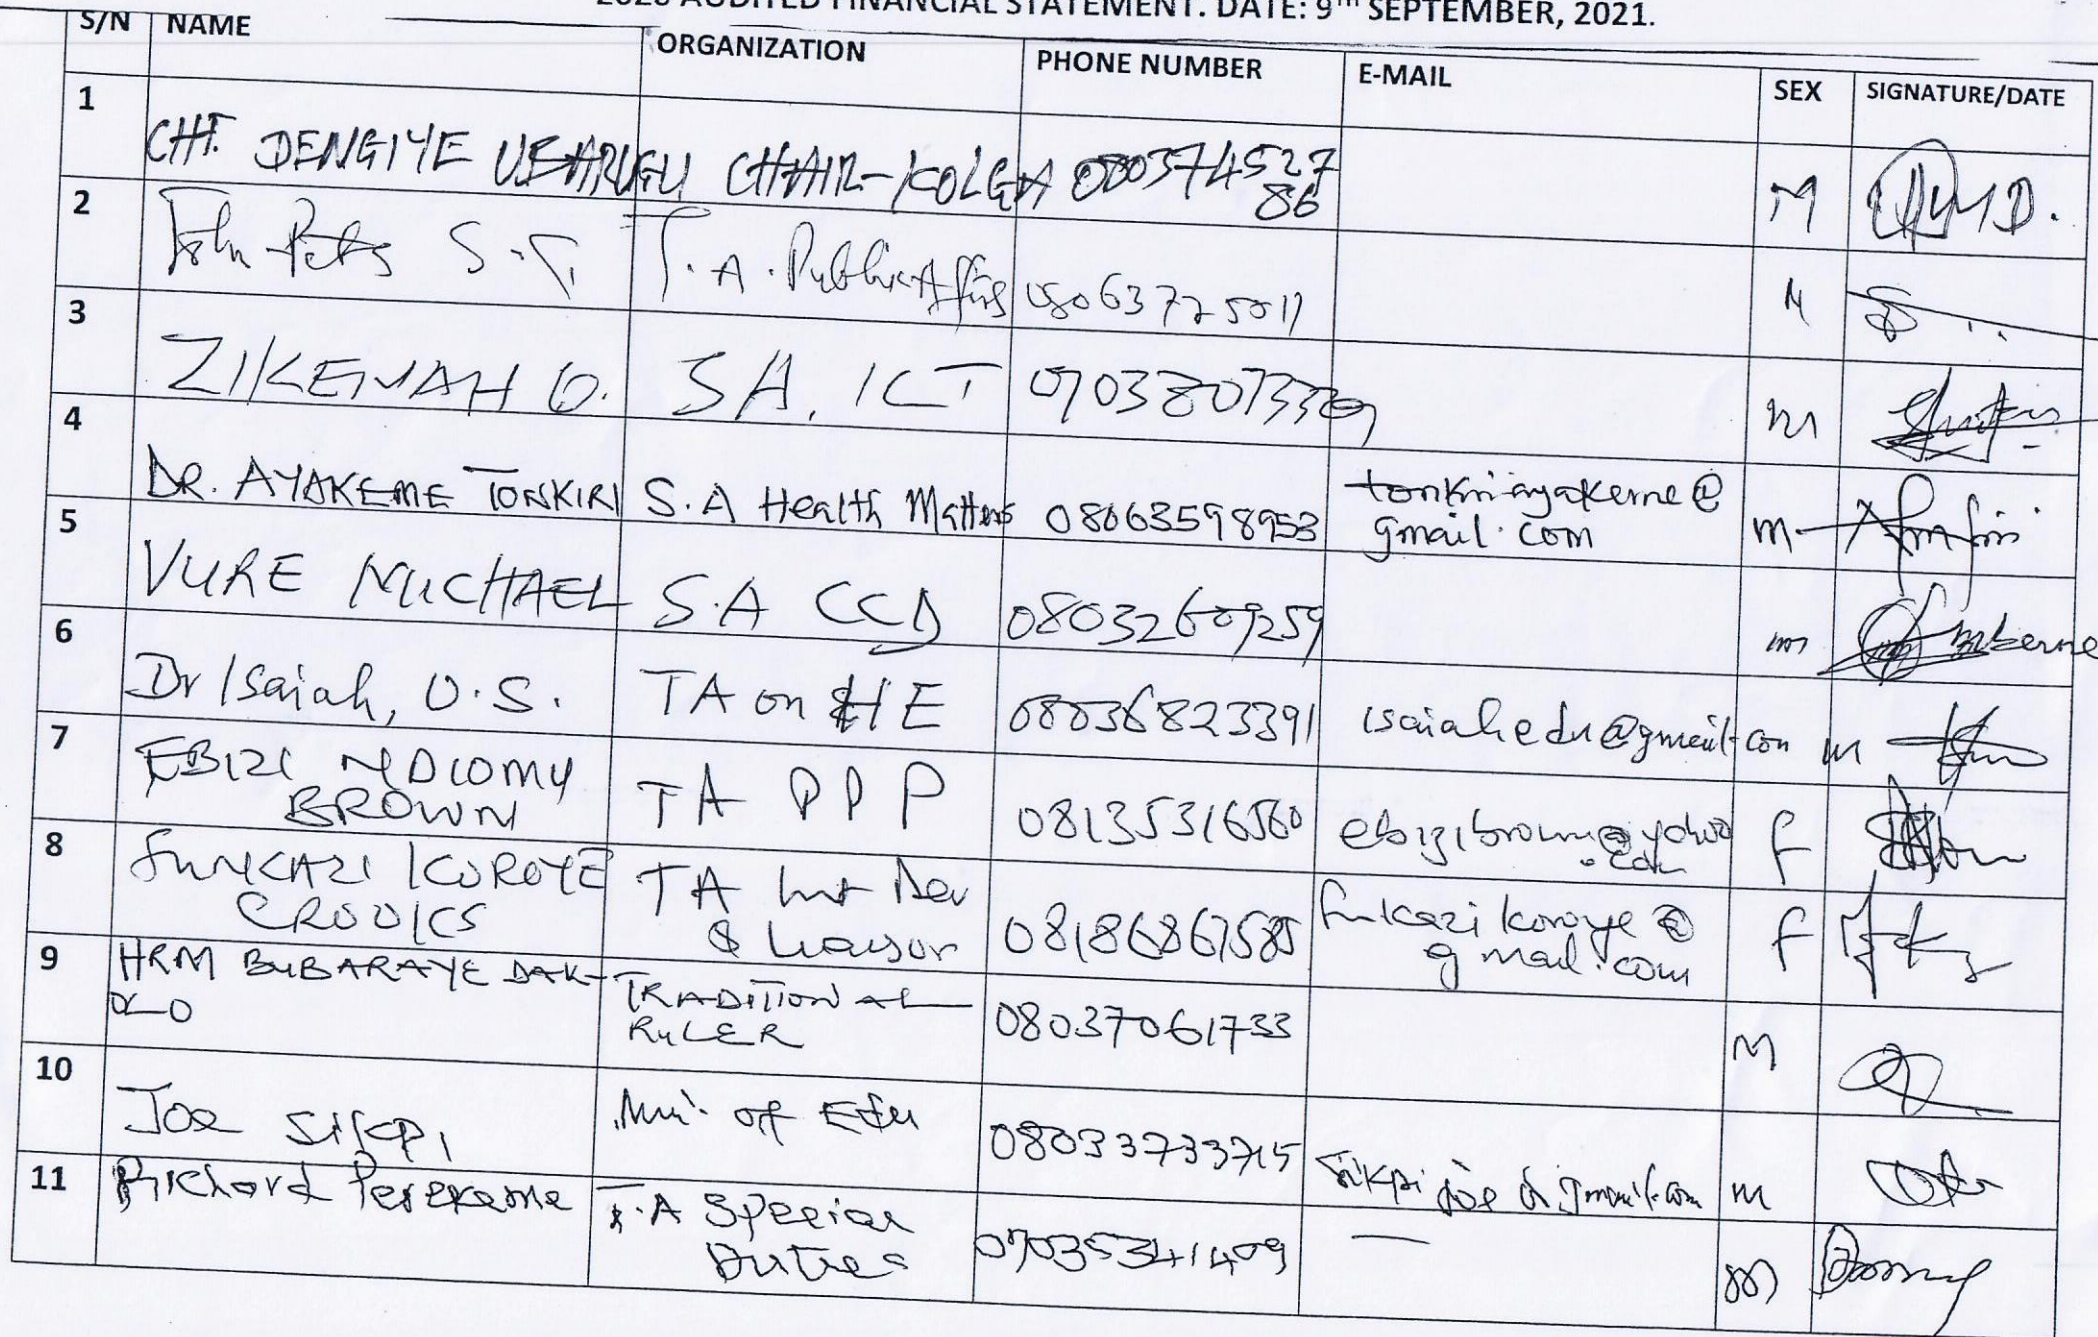 2020 AUDITED FINANCIAL STATEMENT. DATE: 9TH SEPTEMBER, 2021.
S/N NAME ORGANIZATION PHONE NUMBER E-MAIL SEX SIGNATURE/DATE
1 CHF. DENGIYE CHAIR-KOLGA 080374527
86 M
2 John S.T. T.A. Public Affairs 08063725011 M
3 ZIKENAH O. SA. ICT m
4 DR. AYAKEME TONKIRI S.A Health Matters 08063598953 tonkiriayakeme@
gmail.com m
5 VURE MICHAEL S.A CCD 08032609259 m
6 Dr Isaiah, O.S. TA on HE 08036823391 isaiahedu@gmail.com m
7 EBIZI NDIOMU
BROWN TA PPP 08135316560 ebizibrown@yahoo
.com f
8 FUNKAZI KOROYE
CROOKS TA Int Dev
& Liaison 08186867585 funkazikoroye@
gmail.com f
9 HRM BUBARAYE DAK-
OLO TRADITIONAL
RULER 08037061733 M
10 Joe Sikpi Min. of Edu 08033733715 m
11 Richard Perekeme T.A Special
Duties 07035341409 — m